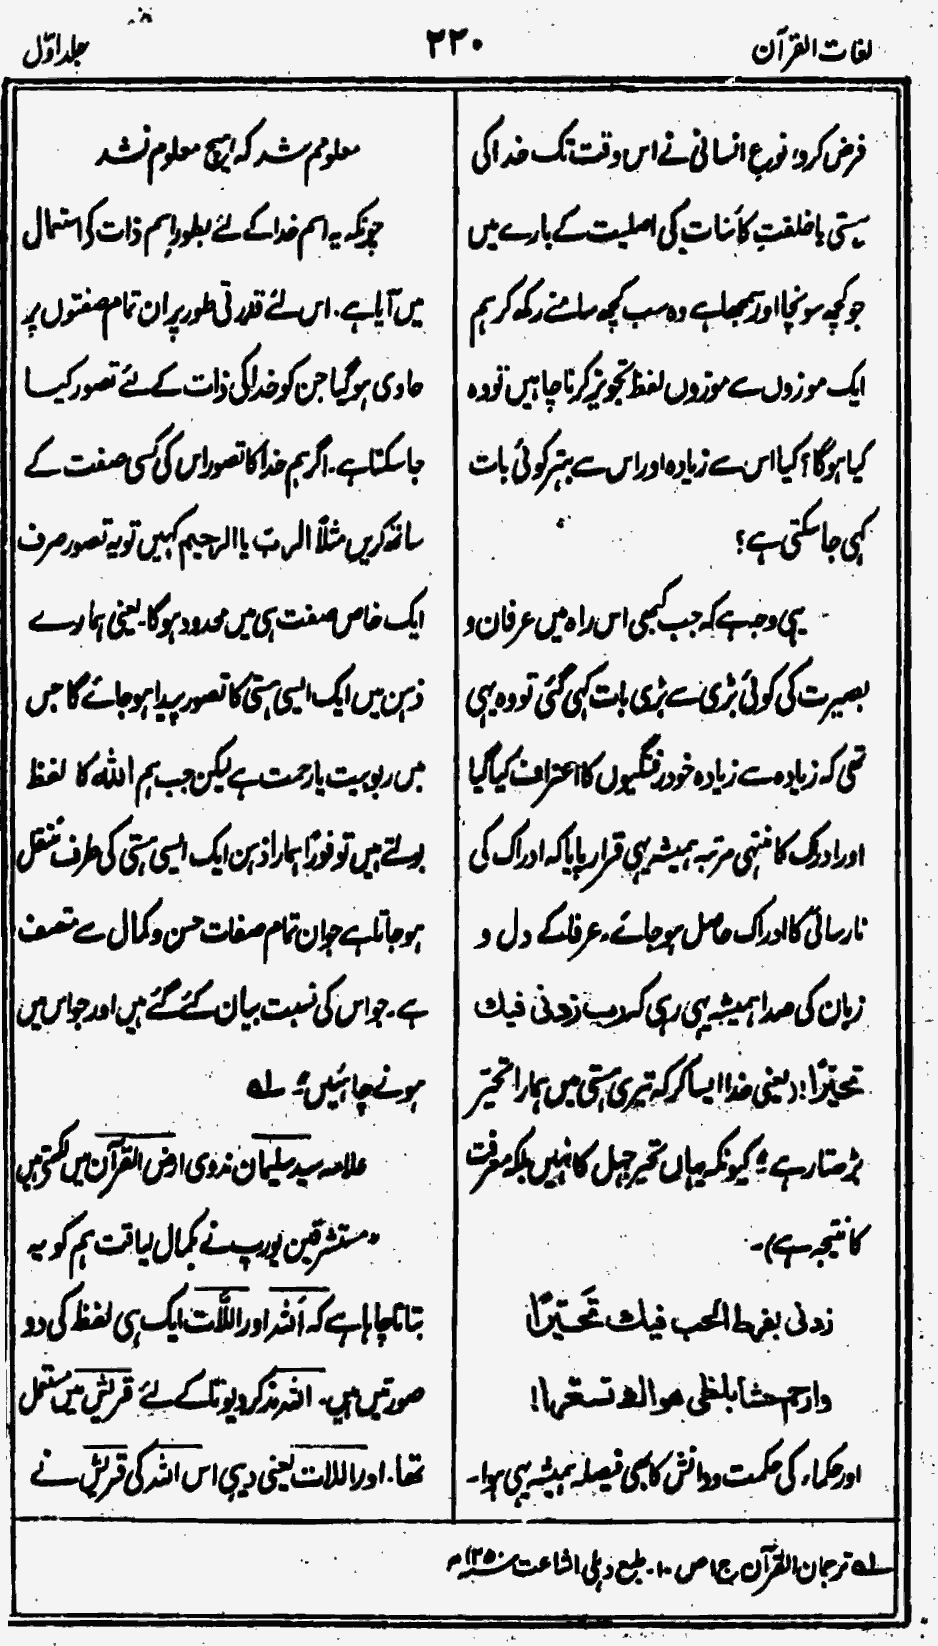 لغات القرآن
۲۲۰
جلد اوّل
فرض کرو، نوعِ انسانی نے اس وقت تک خدا کی
ہستی یا خلقتِ کائنات کی اصلیت کے بارے میں
جو کچھ سونچا اور سمجھا ہے وہ سب کچھ سامنے رکھ کر ہم
ایک موزوں سے موزوں لفظ تجویز کرنا چاہیں تو وہ
کیا ہوگا؟ کیا اس سے زیادہ اور اس سے بہتر کوئی بات
کہی جا سکتی ہے؟
یہی وجہ ہے کہ جب کبھی اس راہ میں عرفان و
بصیرت کی کوئی بڑی سے بڑی بات کہی گئی تو وہ یہی
تھی کہ زیادہ سے زیادہ خودرفتگیوں کا اعتراف کیا گیا
اور ادراک کا منتہی مرتبہ ہمیشہ یہی قرار پایا کہ ادراک کی
نارسائی کا ادراک حاصل ہو جائے۔ عرفاء کے دل و
زبان کی صدا ہمیشہ یہی رہی کہ رب زدنی فیك
تحیّرًا! (یعنی خدا ایسا کر کہ تیری ہستی میں ہمارا تحیّر
بڑھتا رہے" کیونکہ یہاں تحیر جہل کا نہیں بلکہ معرفت
کا نتیجہ ہے)۔
زدنی بفرط الحب فیك تَحَیّرًا
وارحم حشا بلظی هواك تسعّرا!
اور حکماء کی حکمت و دانش کا بھی فیصلہ ہمیشہ یہی رہا۔
معلومم شد کہ ہیچ معلوم نشد
چونکہ یہ اسم خدا کے لئے بطور اسمِ ذات کی استعمال
میں آیا ہے۔ اس لئے قدرتی طور پر ان تمام صفتوں پر
حاوی ہو گیا جن کو خدا کی ذات کے لئے تصور کیا
جا سکتا ہے۔ اگر ہم خدا کا تصور اس کی کسی صفت کے
ساتھ کریں مثلاً الرب یا الرحیم کہیں تو یہ تصور صرف
ایک خاص صفت ہی میں محدود ہوگا۔ یعنی ہمارے
ذہن میں ایک ایسی ہستی کا تصور پیدا ہو جائے گا جس
میں ربوبیت یا رحمت ہے لیکن جب ہم اللہ کا لفظ
بولتے ہیں تو فورًا ہمارا ذہن ایک ایسی ہستی کی طرف منتقل
ہو جاتا ہے جو ان تمام صفات حسن و کمال سے متصف
ہے۔ جو اس کی نسبت بیان کئے گئے ہیں اور جو اس میں
ہونے چاہئیں" لہ
علامہ سید سلیمان ندوی ارض القرآن میں لکھتے ہیں
"مستشرقین یورپ نے بکمال لیاقت ہم کو یہ
بتانا چاہا ہے کہ اَللہ اور اللَّات ایک ہی لفظ کی دو
صورتیں ہیں۔ اللہ مذکر دیوتا کے لئے قریش میں مستعمل
تھا۔ اور اللات یعنی دیبی اس اللہ کی قریش نے
لہ ترجمان القرآن ج ا ص ۱۰۔ طبع دہلی اشاعت